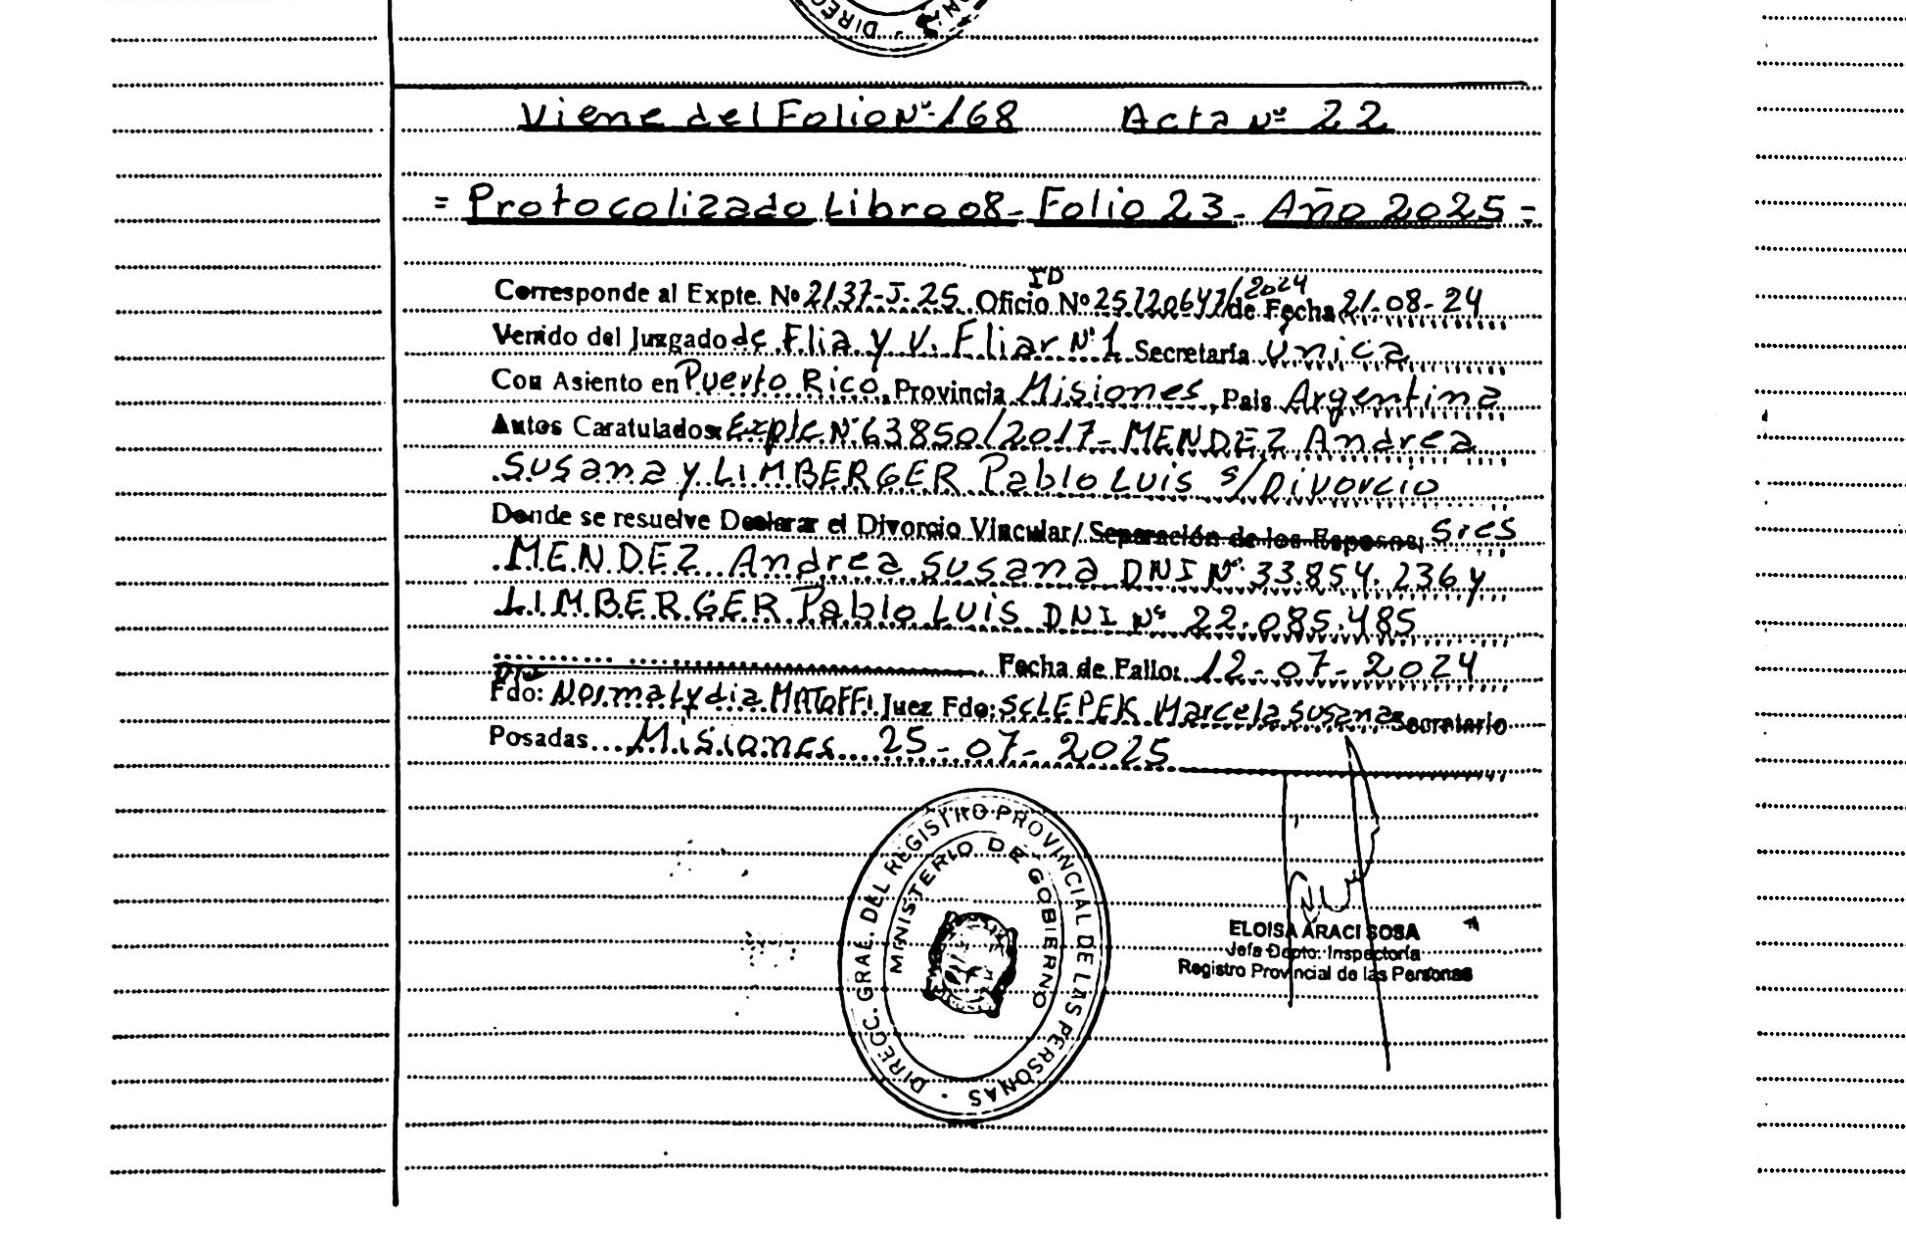 Viene del Folio Nº 168 Acta Nº 22
= Protocolizado Libro 08 - Folio 23 - Año 2025 =
Corresponde al Expte. Nº 2137-J-25 Oficio ID Nº 25720647/2024 de Fecha 21-08-24
Venido del Juzgado de Flia y V. Fliar Nº 1 Secretaría Única
Con Asiento en Puerto Rico, Provincia Misiones, Pais Argentina
Autos Caratulados: Expte Nº 63850/2017- MENDEZ Andrea
Susana y LIMBERGER Pablo Luis s/Divorcio
Donde se resuelve Declarar el Divorcio Vincular/ Separación de los Esposos; Sres
MENDEZ Andrea Susana DNI Nº 33.854.236 y
LIMBERGER Pablo Luis DNI Nº 22.085.485
Fecha de Fallo: 12-07-2024
Fdo: Norma Lydia Juez Fdo: SCLEPEK Marcela Susana Secretario
Posadas... Misiones 25-07-2025
DIRECC. GRAL. DEL REGISTRO PROVINCIAL DE LAS PERSONAS
MINISTERIO DE GOBIERNO
ELOISA ARACI SOSA
Jefa Depto. Inspectoría
Registro Provincial de las Personas